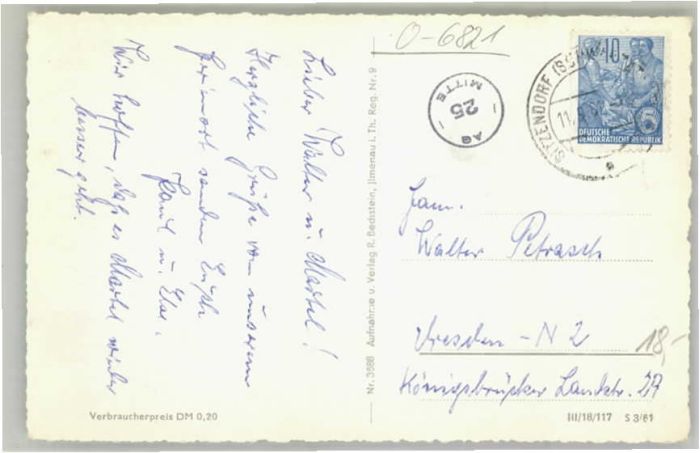 Lieber Walter u. Martel!
Herzliche Grüße von unserem
Ferienort senden Euch
Paul u. Else.
Wir hoffen, daß es Martel wieder
besser geht.
Verbraucherpreis DM 0,20
Nr. 3588 Aufnahme u. Verlag R. Bechstein, Ilmenau i. Th. Reg. Nr. 9
O-6821
AG
25
MITTE
SITZENDORF (SCHWARZATAL)
11.
10
DEUTSCHE
DEMOKRATISCHE REPUBLIK
5
Fam.
Walter Petrasch
Dresden - N 2
18,-
Königsbrücker Landstr. 27
III/18/117 S 3/61